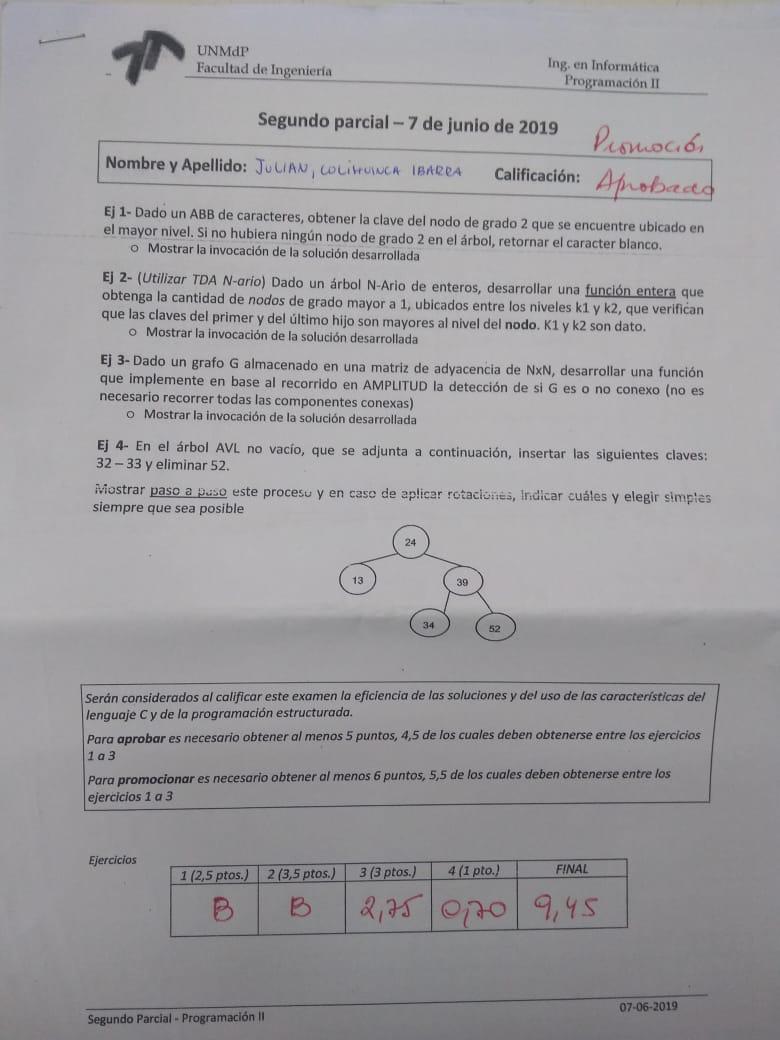 UNMdP
Facultad de Ingeniería
Ing. en Informática
Programación II
Segundo parcial – 7 de junio de 2019
Promoción
Nombre y Apellido: JULIAN, COLIHUINCA IBARRA Calificación: Aprobado
Ej 1- Dado un ABB de caracteres, obtener la clave del nodo de grado 2 que se encuentre ubicado en
el mayor nivel. Si no hubiera ningún nodo de grado 2 en el árbol, retornar el caracter blanco.
o Mostrar la invocación de la solución desarrollada
Ej 2- (Utilizar TDA N-ario) Dado un árbol N-Ario de enteros, desarrollar una función entera que
obtenga la cantidad de nodos de grado mayor a 1, ubicados entre los niveles k1 y k2, que verifican
que las claves del primer y del último hijo son mayores al nivel del nodo. K1 y k2 son dato.
o Mostrar la invocación de la solución desarrollada
Ej 3- Dado un grafo G almacenado en una matriz de adyacencia de NxN, desarrollar una función
que implemente en base al recorrido en AMPLITUD la detección de si G es o no conexo (no es
necesario recorrer todas las componentes conexas)
o Mostrar la invocación de la solución desarrollada
Ej 4- En el árbol AVL no vacío, que se adjunta a continuación, insertar las siguientes claves:
32 – 33 y eliminar 52.
Mostrar paso a paso este proceso y en caso de aplicar rotaciones, indicar cuáles y elegir simples
siempre que sea posible
24
13
39
34
52
Serán considerados al calificar este examen la eficiencia de las soluciones y del uso de las características del
lenguaje C y de la programación estructurada.
Para aprobar es necesario obtener al menos 5 puntos, 4,5 de los cuales deben obtenerse entre los ejercicios
1 a 3
Para promocionar es necesario obtener al menos 6 puntos, 5,5 de los cuales deben obtenerse entre los
ejercicios 1 a 3
Ejercicios
1 (2,5 ptos.) 2 (3,5 ptos.) 3 (3 ptos.) 4 (1 pto.) FINAL
B B 2,75 0,70 9,45
Segundo Parcial - Programación II
07-06-2019